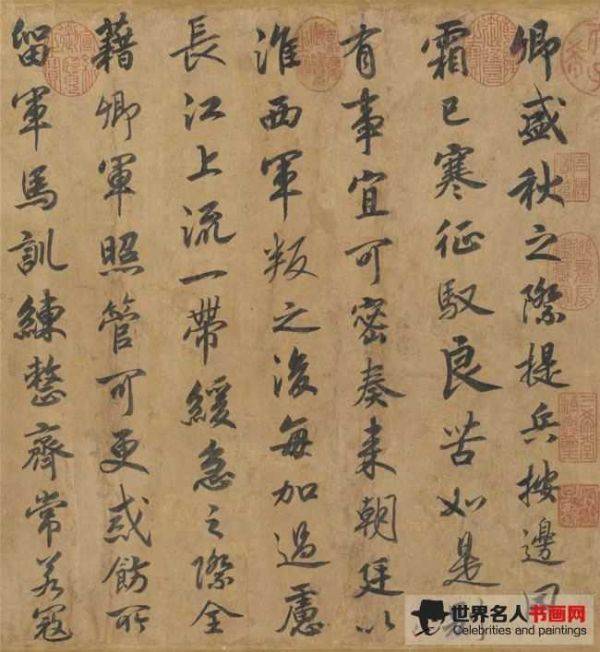 卿盛秋之際提兵按邊風
霜已寒征馭良苦如是別
有事宜可密奏來朝廷以
淮西軍叛之後每加過慮
長江上流一帶緩急之際全
藉卿軍照管可更戒飭所
留軍馬訓練整齊常若寇
世界名人书画网
Celebrities and paintings